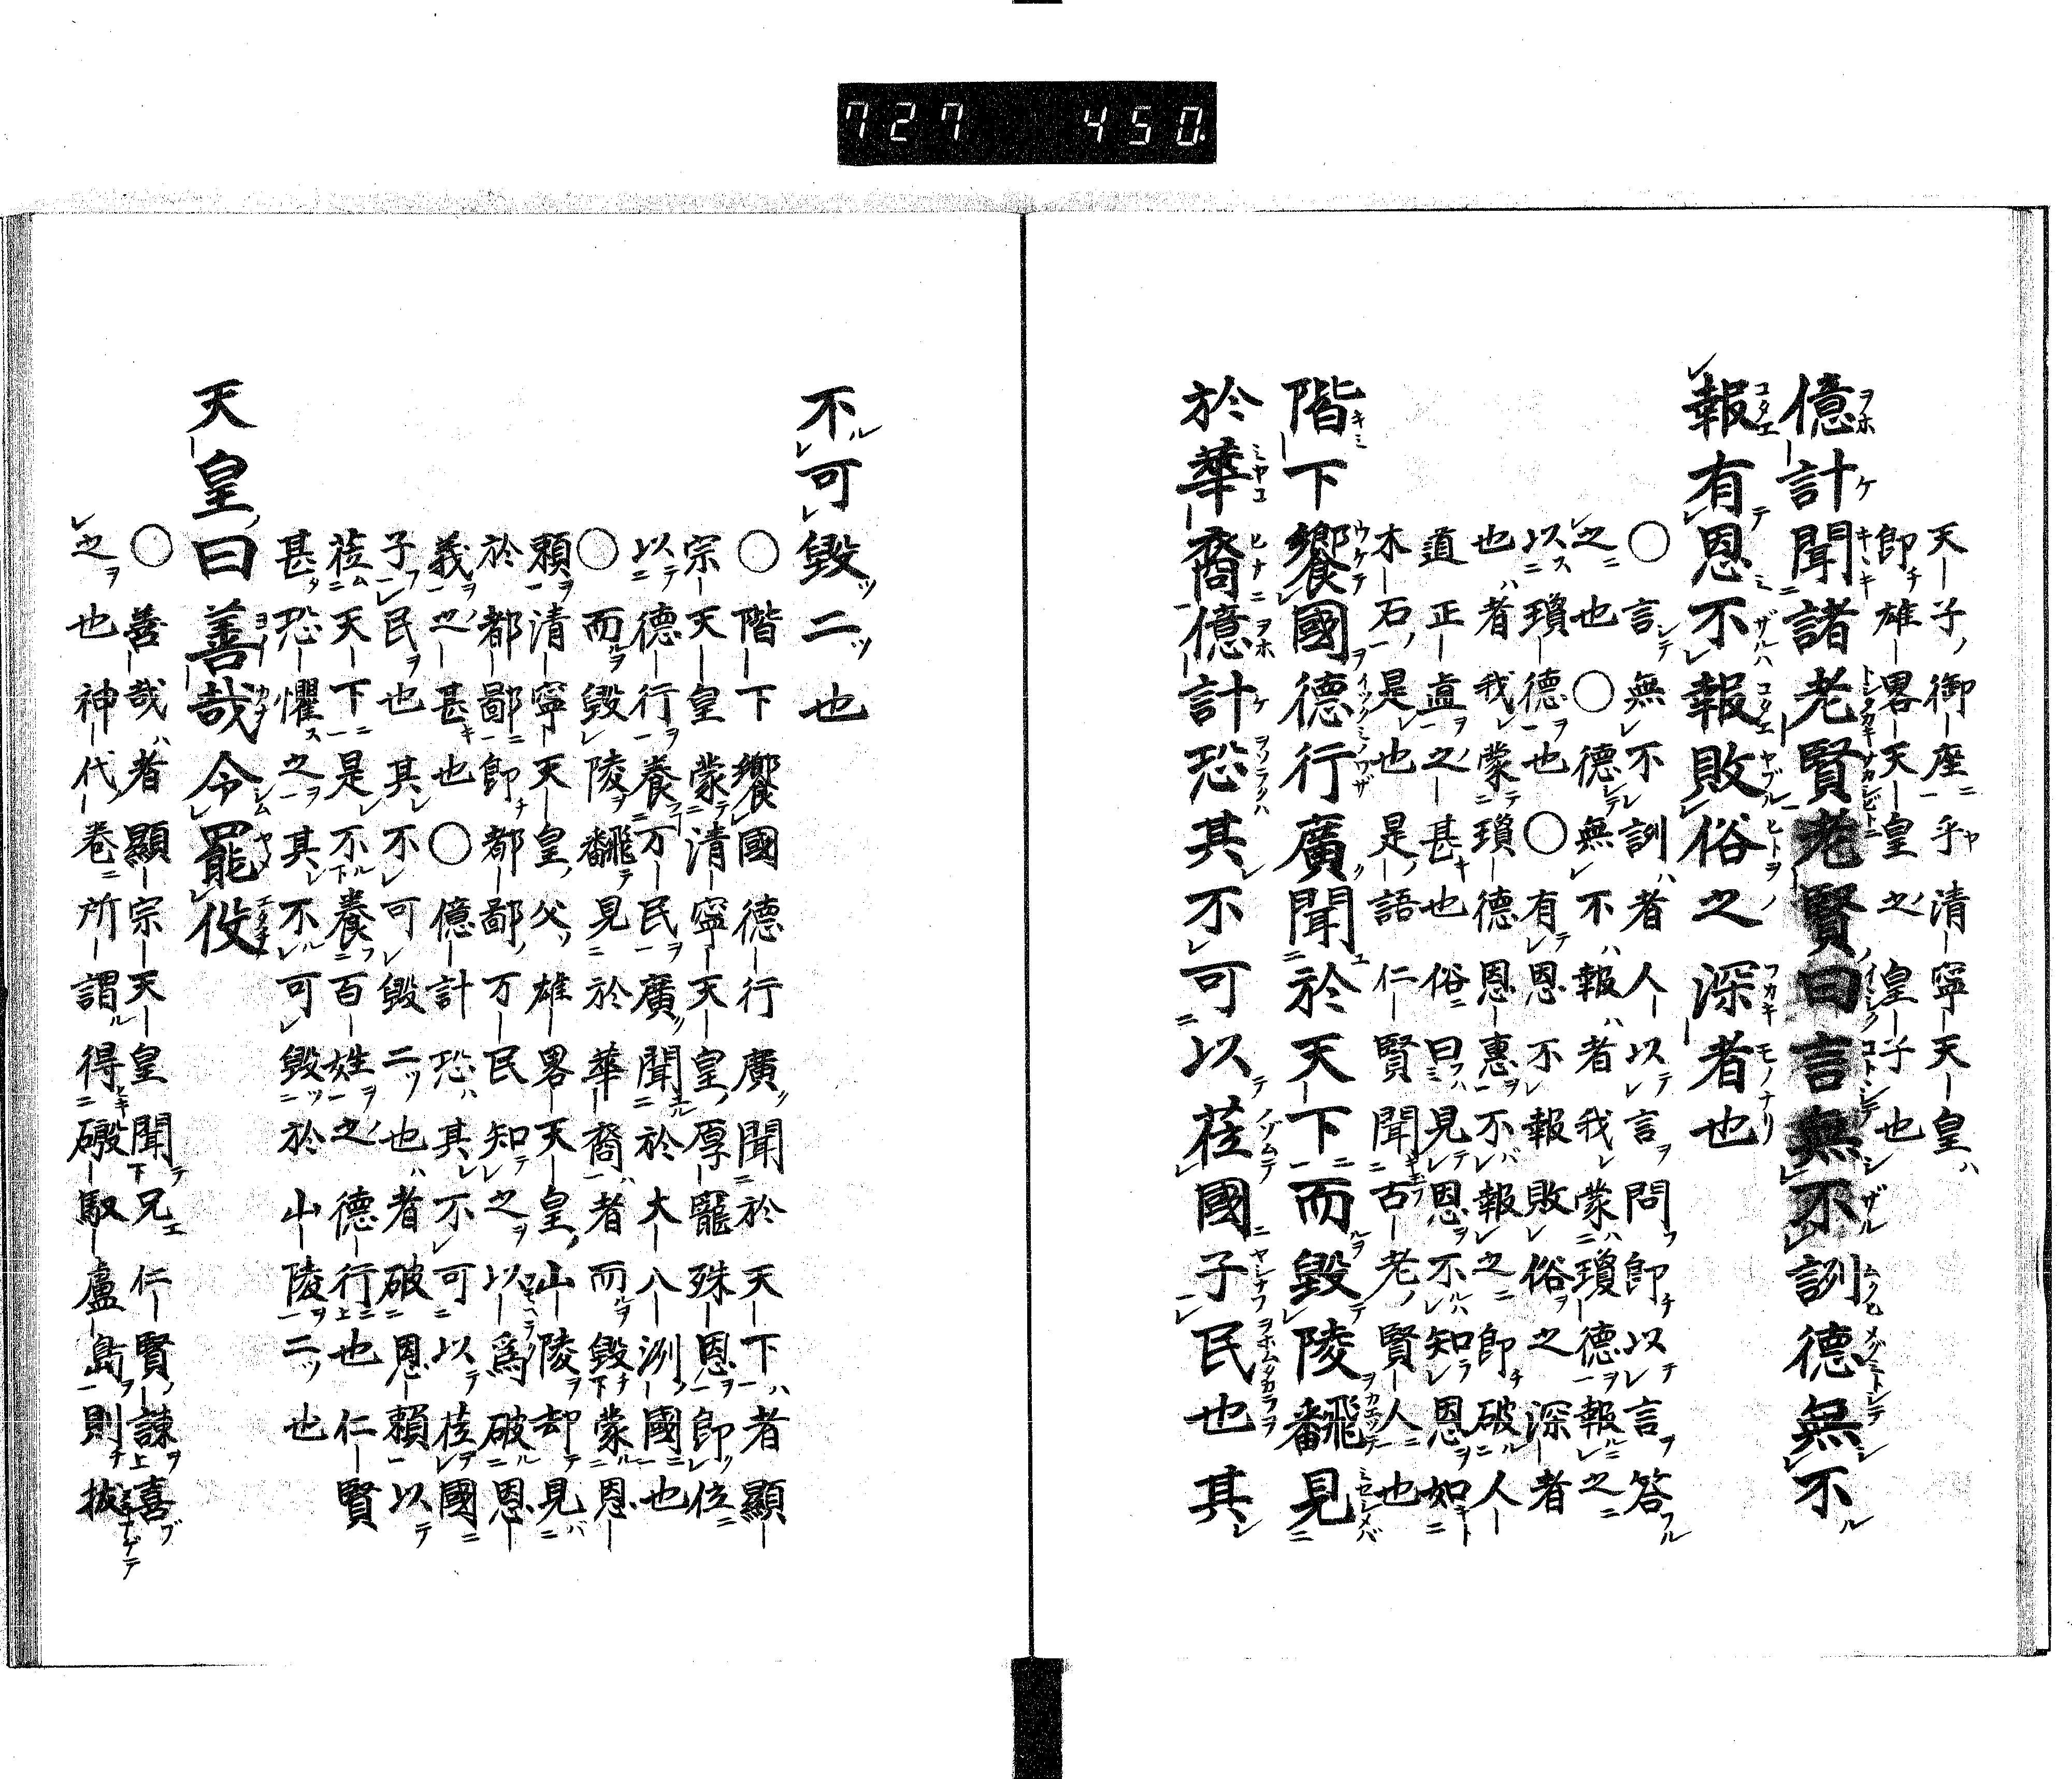 727 450
天子御座乎清寧天皇
即雄畧天皇之皇子也
億計聞諸老賢老賢曰言無不訓德無不
報有恩不報敗俗之深者也
○言無不訓者人以言問即以言答
之也○德無不報者我蒙瓊德報之
以瓊德也○有恩不報敗俗之深者
也者我蒙瓊德恩惠不報之即破人
道正直之甚也俗曰見恩不知恩如
木石是也是語仁賢聞古老賢人也
階下饗國德行廣聞於天下而毀陵飜見
於華裔億計恐其不可以莅國子民也其
不可毀二也
○階下饗國德行廣聞於天下者顯
宗天皇蒙清寧天皇厚寵殊恩即位
以德行養万民廣聞於大八洲國也
○而毀陵飜見於華裔者而毀蒙恩
賴清寧天皇父雄畧天皇山陵却見
於都鄙即都鄙万民知之以爲破恩
義之甚也○億計恐其不可以莅國
子民也其不可毀二也者破恩賴以
莅天下是不養百姓之德行也仁賢
甚恐懼之其不可毀於山陵二也
天皇曰善哉令罷役
○善哉者顯宗天皇聞兄仁賢諫喜
之也神代卷所謂得磤馭盧島則拔